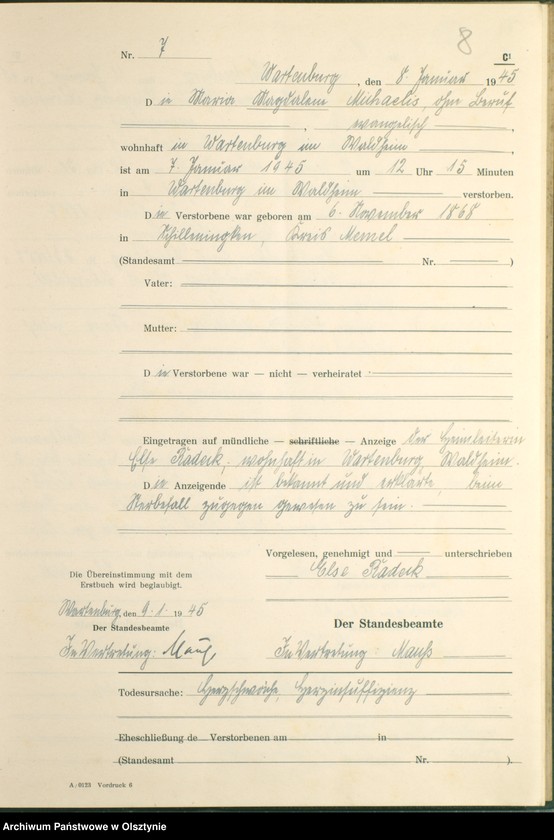 8
C¹
Nr. 7
Wartenburg, den 8. Januar 1945
Die Maria Magdalena Michaelis, ohne Beruf
, evangelisch,
wohnhaft in Wartenburg im Waldheim,
ist am 7. Januar 1945 um 12 Uhr 15 Minuten
in Wartenburg im Waldheim verstorben.
Die Verstorbene war geboren am 6. November 1868
in Schillmingken, Kreis Memel
(Standesamt Nr. )
Vater:
Mutter:
Die Verstorbene war — nicht — verheiratet
Eingetragen auf mündliche — schriftliche — Anzeige der Heimleiterin
Else Radeck, wohnhaft in Wartenburg, Waldheim.
Die Anzeigende ist bekannt und erklärte, beim
Sterbefall zugegen gewesen zu sein.
Vorgelesen, genehmigt und unterschrieben
Else Radeck
Die Übereinstimmung mit dem
Erstbuch wird beglaubigt.
Wartenburg, den 9. 1. 1945
Der Standesbeamte
In Vertretung:
Der Standesbeamte
In Vertretung: Mauß
Todesursache: Herzschwäche, Herzinsuffizienz
Eheschließung de Verstorbenen am in
(Standesamt Nr. ).
A/0123 Vordruck 6
Archiwum Państwowe w Olsztynie